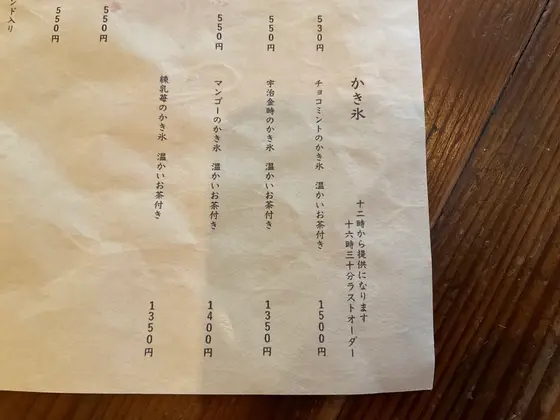 かき氷
十二時から提供になります
十六時三十分ラストオーダー
530円
チョコミントのかき氷 温かいお茶付き 1500円
550円
宇治金時のかき氷 温かいお茶付き 1350円
550円
マンゴーのかき氷 温かいお茶付き 1400円
練乳苺のかき氷 温かいお茶付き 1350円
550円
550円
ンド入り